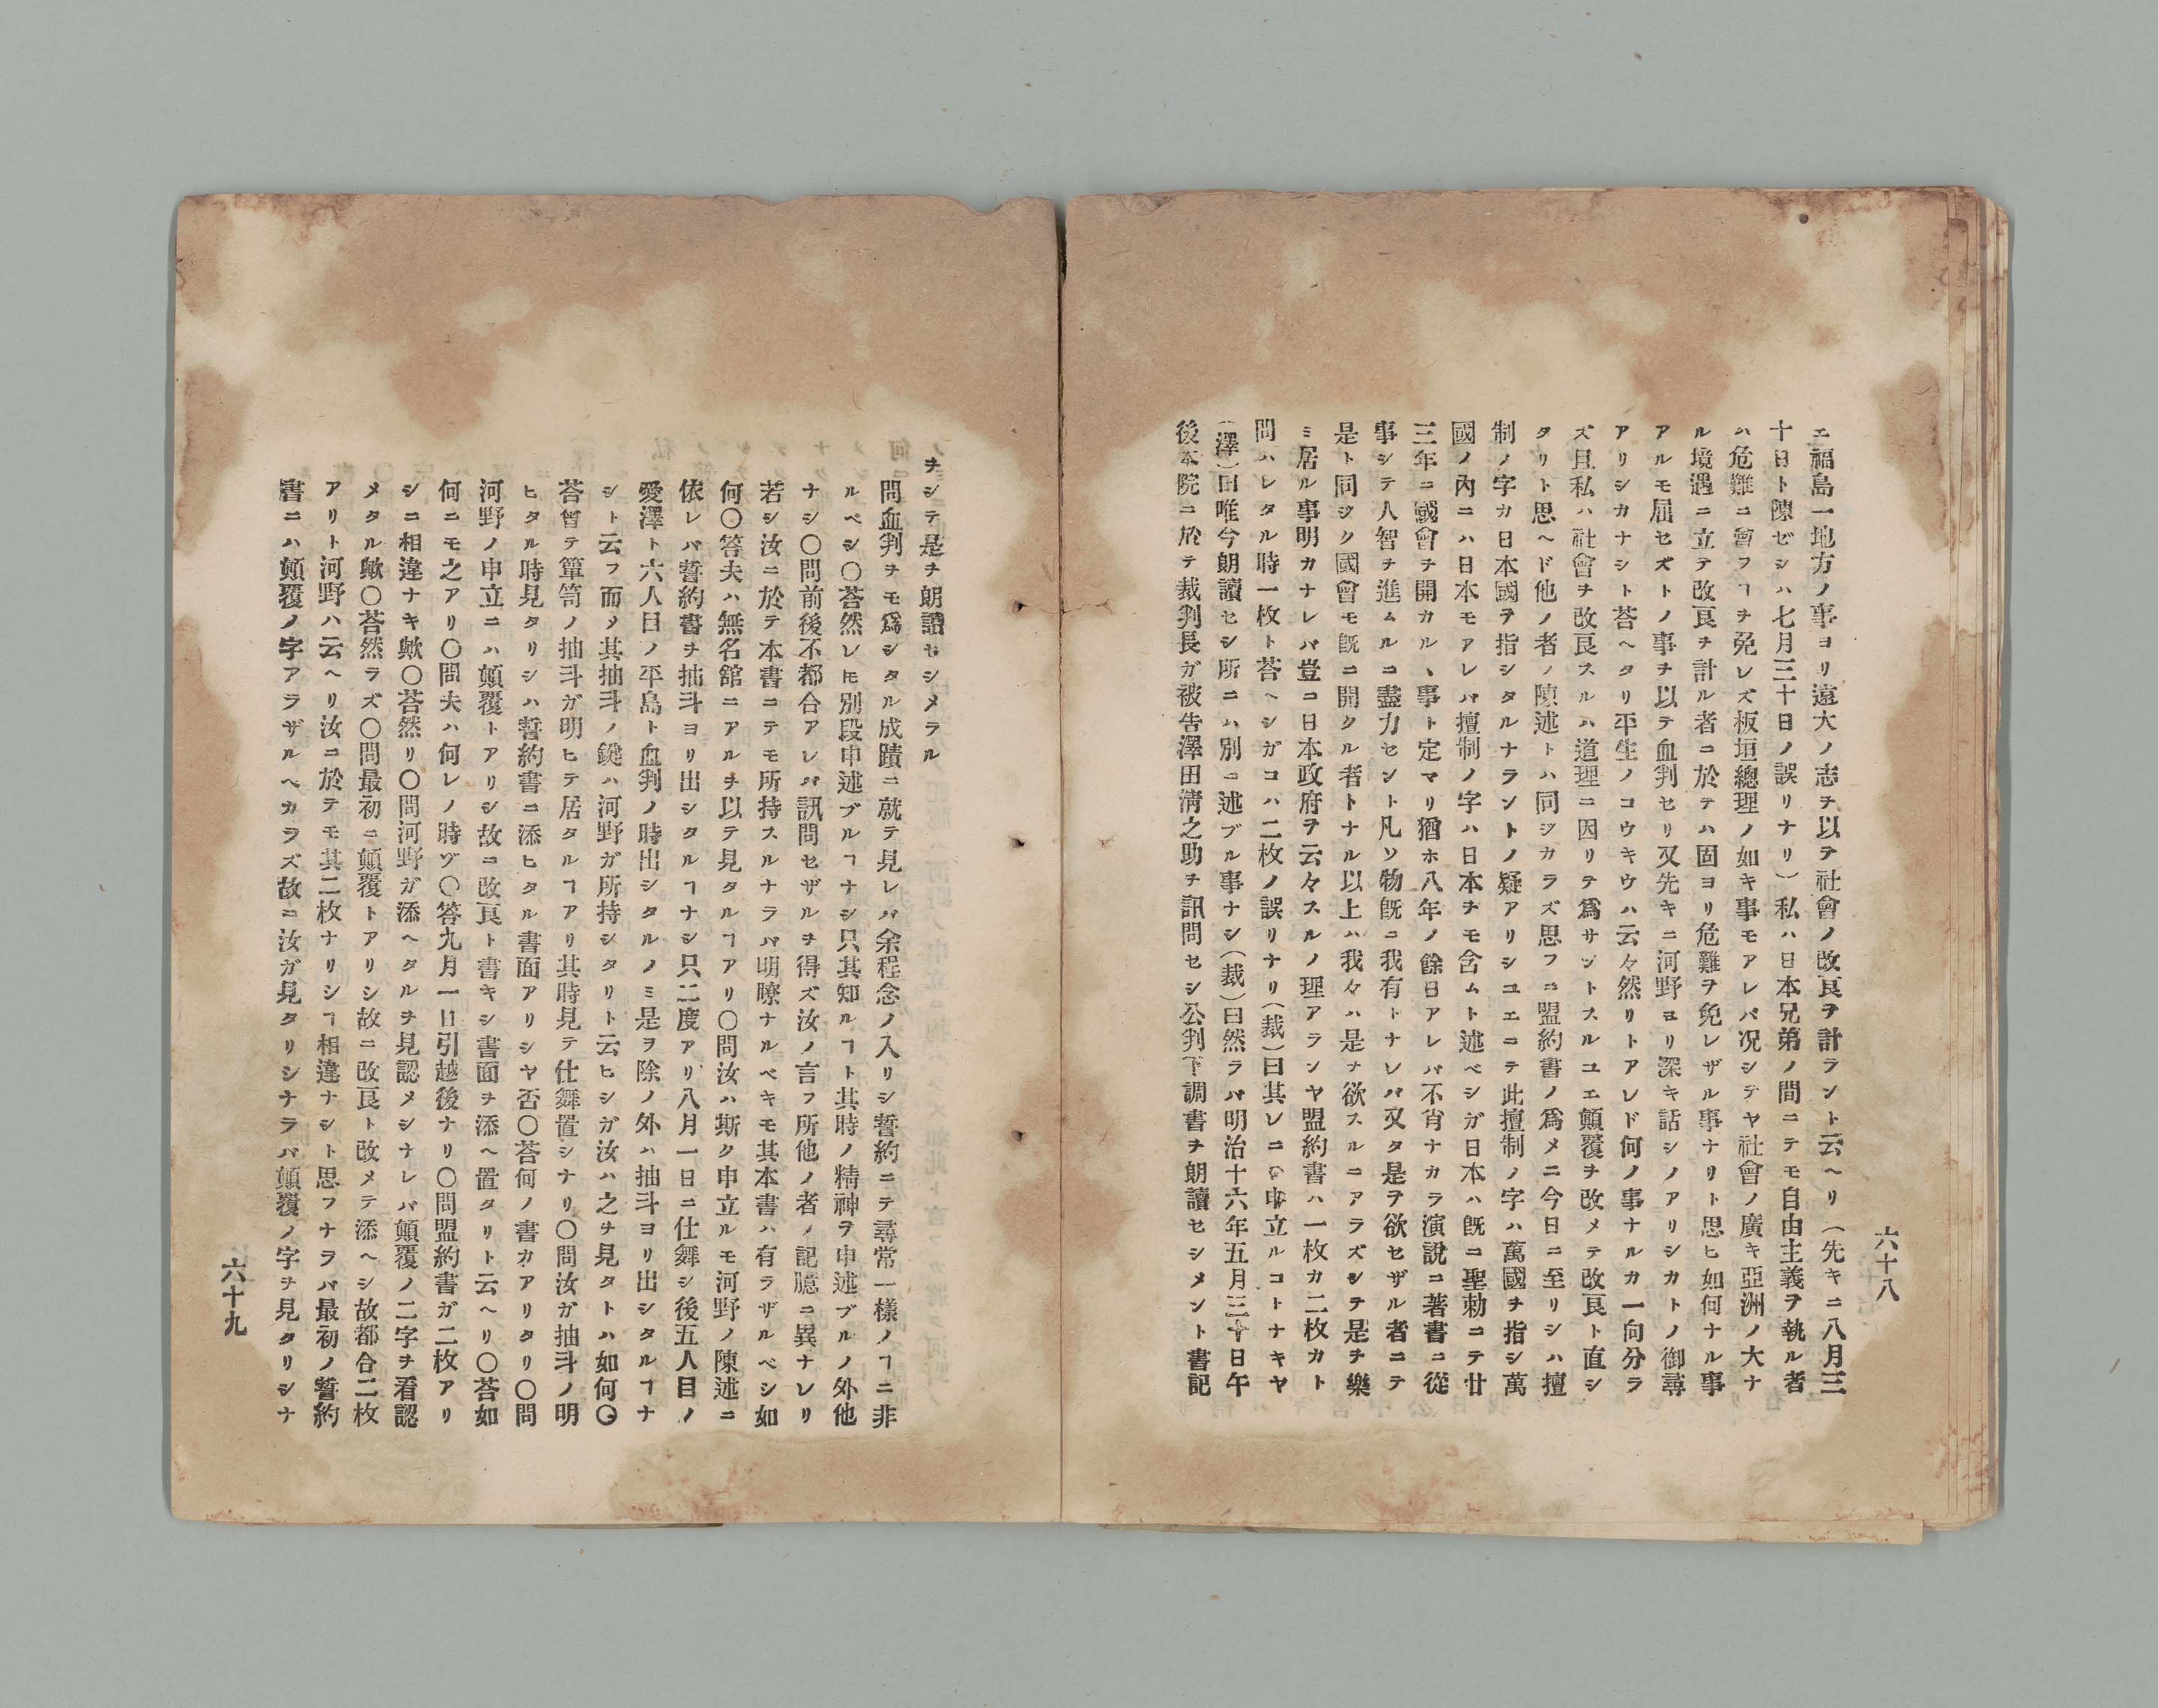 六十八
エ福島一地方ノ事ヨリ遠大ノ志ヲ以テ社會ノ改良ヲ計ラント云ヘリ(先キニ八月三
十日ト陳ゼシハ七月三十日ノ誤リナリ)私ハ日本兄弟ノ間ニテモ自由主義ヲ執ル者
ハ危難ニ會フヿヲ免レズ板垣總理ノ如キ事モアレバ况シテヤ社會ノ廣キ亞洲ノ大ナ
ル境遇ニ立テ改良ヲ計ル者ニ於テハ固ヨリ危難ヲ免レザル事ナリト思ヒ如何ナル事
アルモ屈セズトノ事ヲ以テ血判セリ又先キニ河野ヨリ深キ話シノアリシカトノ御尋
アリシカナシト荅ヘタリ平生ノコウキウハ云々然リトアレド何ノ事ナルカ一向分ラ
ズ且私ハ社會ヲ改良スルハ道理ニ因リテ爲サヾトスルユエ顛覆ヲ改メテ改良ト直シ
タリト思ヘド他ノ者ノ陳述トハ同ジカラズ思フニ盟約書ノ爲メニ今日ニ至リシハ擅
制ノ字カ日本國ヲ指シタルナラントノ疑アリシユエニテ此擅制ノ字ハ萬國ヲ指シ萬
國ノ內ニハ日本モアレバ擅制ノ字ハ日本ヲモ含ムト述ベシガ日本ハ旣ニ聖勅ニテ廿
三年ニ國會ヲ開カル、事ト定マリ猶ホ八年ノ餘日アレバ不肖ナカラ演說ニ著書ニ從
事シテ人智ヲ進ムルコ盡力セント凡ソ物旣ニ我有トナレバ又タ是ヲ欲セザル者ニテ
是ト同ジク國會モ旣ニ開クル者トナル以上ハ我々ハ是ヲ欲スルニアラズシテ是ヲ樂
ミ居ル事明カナレバ豈ニ日本政府ヲ云々スルノ理アランヤ盟約書ハ一枚カ二枚カト
問ハレタル時一枚ト荅ヘシガコハ二枚ノ誤リナリ(裁)曰其レニ申立ルコトナキヤ
(澤)曰唯今朗讀セシ所ニハ別ニ述ブル事ナシ(裁)曰然ラバ明治十六年五月三十日午
後本院ニ於テ裁判長ガ被告澤田淸之助ヲ訊問セシ公判下調書ヲ朗讀セシメント書記
ヲシテ是ヲ朗讀セシメラル
問血判ヲモ爲シタル成蹟ニ就テ見レバ余程念ノ入リシ誓約ニテ尋常一樣ノヿニ非
ルベシ〇荅然レ𪜈別段申述ブルヿナシ只其知ルヿト其時ノ精神ヲ申述ブルノ外他
ナシ〇問前後不都合アレバ訊問セザルヲ得ズ汝ノ言フ所他ノ者ノ記臆ニ異ナレリ
若シ汝ニ於テ本書ニテモ所持スルナラバ明瞭ナルベキモ其本書ハ有ラザルベシ如
何〇答夫ハ無名舘ニアルヲ以テ見タルヿアリ〇問汝ハ斯ク申立ルモ河野ノ陳述ニ
依レバ誓約書ヲ抽斗ヨリ出シタルヿナシ只二度アリ八月一日ニ仕舞シ後五人目ノ
愛澤ト六人目ノ平島ト血判ノ時出シタルノミ是ヲ除ノ外ハ抽斗ヨリ出シタルヿナ
シト云フ而メ其抽斗ノ鍵ハ河野ガ所持シタリト云ヒシガ汝ハ之ヲ見タトハ如何〇
荅曾テ簞笥ノ抽斗ガ明ヒテ居タルヿアリ其時見テ仕舞置シナリ〇問汝ガ抽斗ノ明
ヒタル時見タリシハ誓約書ニ添ヒタル書面アリシヤ否〇荅何ノ書カアリタリ〇問
河野ノ申立ニハ顛覆トアリシ故ニ改良ト書キシ書面ヲ添ヘ置タリト云ヘリ〇荅如
何ニモ之アリ〇問夫ハ何レノ時ヅ〇答九月一日引越後ナリ〇問盟約書ガ二枚アリ
シニ相違ナキ歟〇荅然リ〇問河野ガ添ヘタルヲ見認メシナレバ顛覆ノ二字ヲ看認
メタル歟〇荅然ラズ〇問最初ニ顛覆トアリシ故ニ改良ト改メテ添ヘシ故都合二枚
アリト河野ハ云ヘリ汝ニ於テモ其二枚ナリシヿ相違ナシト思フナラバ最初ノ誓約
書ニハ顛覆ノ字アラザルベカラズ故ニ汝ガ見タリシナラバ顛覆ノ字ヲ見タリシナ
六十九